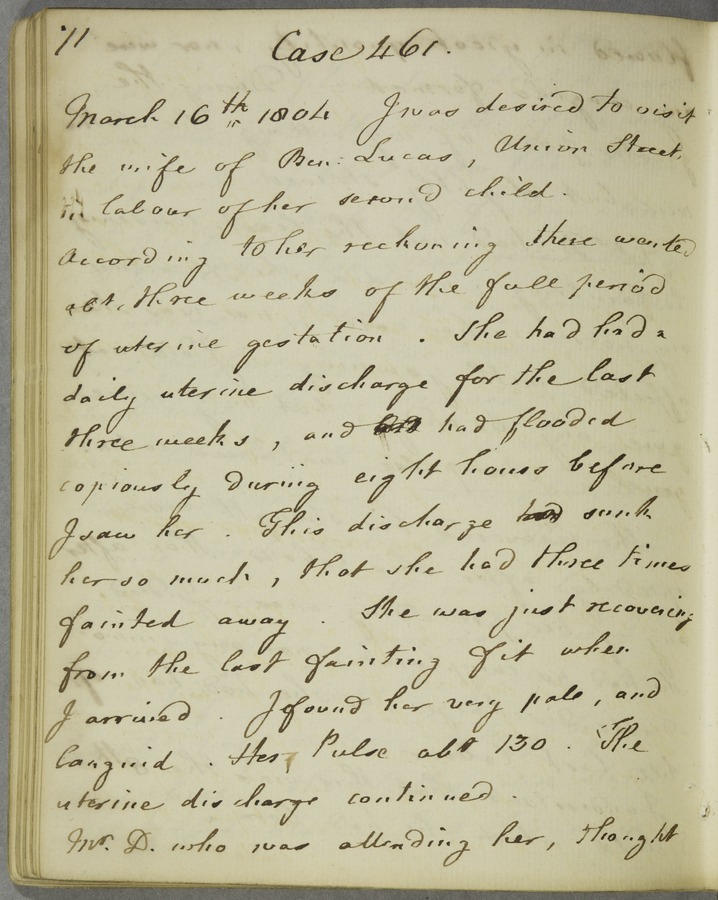 71
Case 461.
March 16th 1804 I was desired to visit
the wife of Ben: Lucas, Union Street,
in labour of her second child.
According to her reckoning there wanted
abt, three weeks of the full period
of uterine gestation. She had had a
daily uterine discharge for the last
three weeks, and had flooded
copiously during eight hours before
I saw her. This discharge sunk
her so much, that she had three times
fainted away. She was just recovering
from the last fainting fit when
I arrived. I found her very pale, and
languid. Her Pulse abt 130. The
uterine discharge continued.
Mr. D. who was attending her, thought